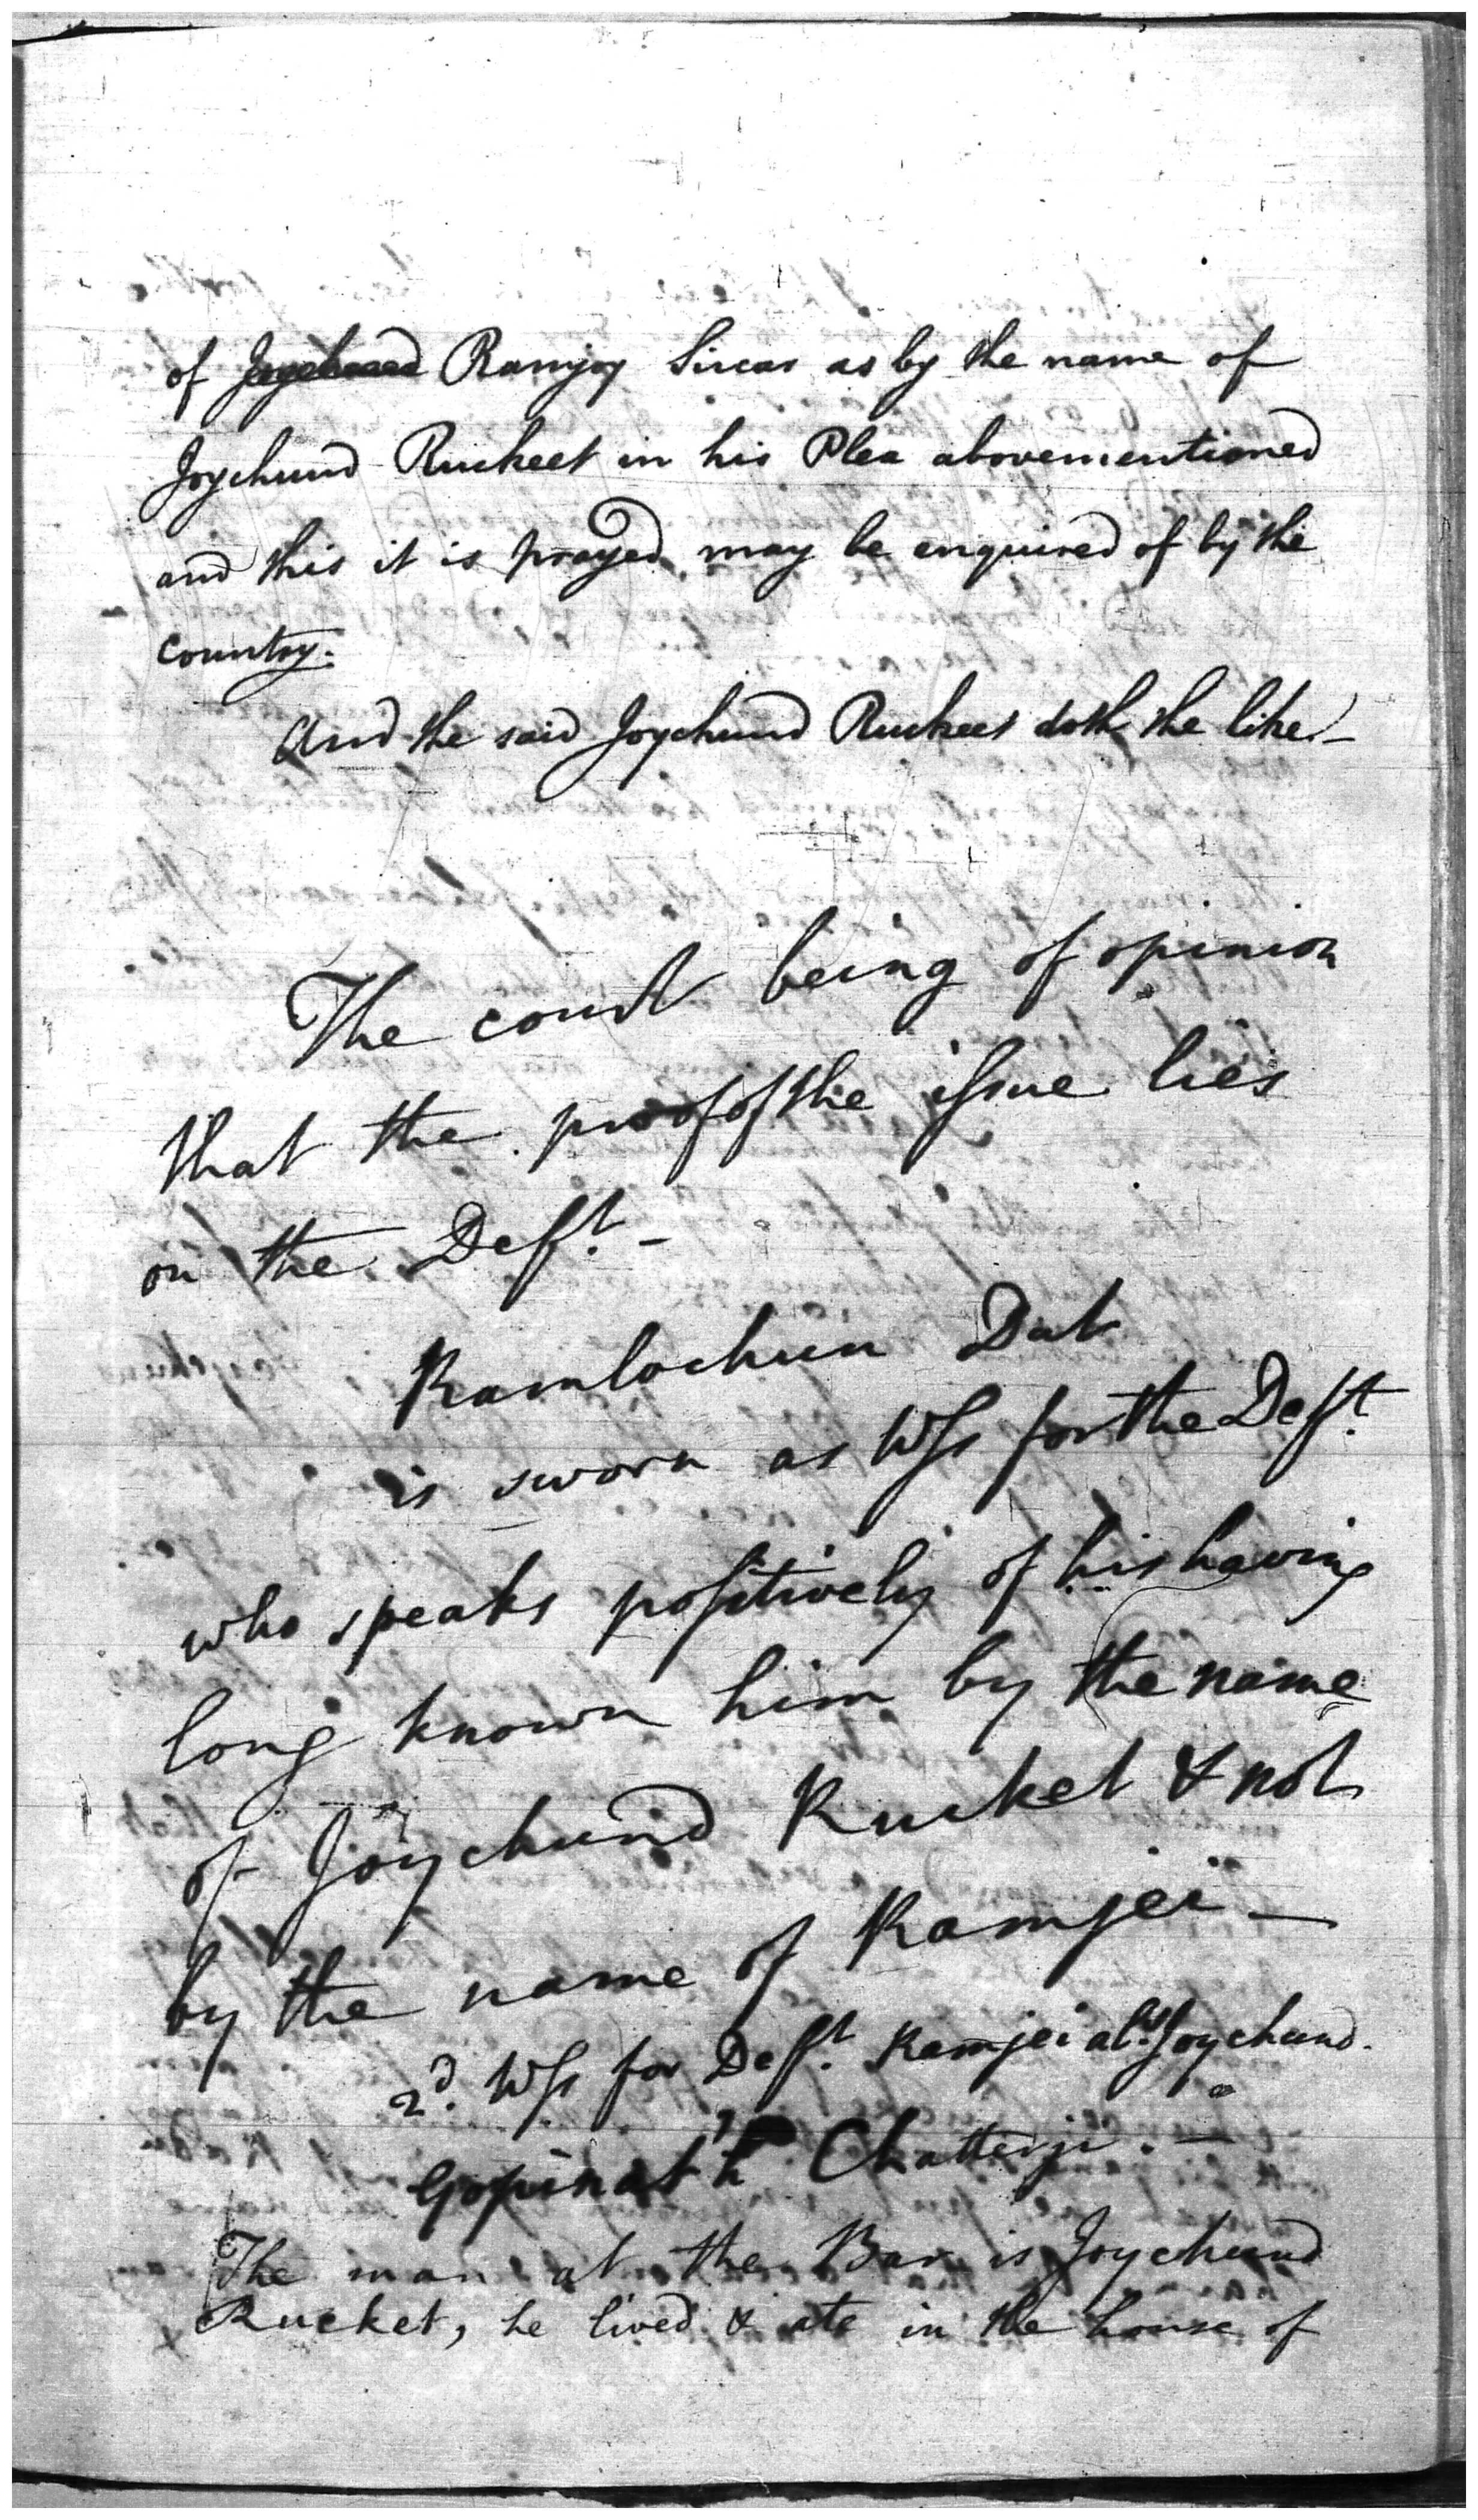 of Ramjoy Sircar as by the name of
Joychund Ruckeet in his Plea abovementioned
and this it is prayed may be enquired of by the
country.
And the said Joychund Ruckeet doth the like.—
The court being of opinion
that the proof of the issue lies
on the Deft. —
Ramlochun Dut
is sworn as Wss for the Deft.
who speaks positively of his having
long known him by the name
of Joychund Rucket & not
by the name of Ramjei —
2d. Wss for Deft. Ramjei als. Joychund.
Gopinath Chatterji. —
The man at the Bar is Joychund
Rucket, he lived & ate in the house of